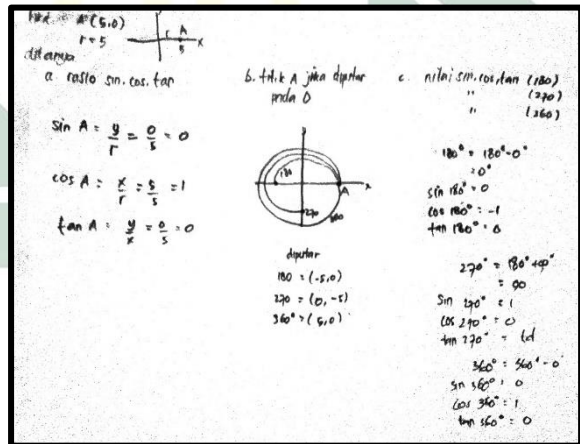 A(5,0)
r = 5
r A
5 x
ditanya
a. rasio sin, cos, tan
sin A = y/r = 0/5 = 0
cos A = x/r = 5/5 = 1
tan A = y/x = 0/5 = 0
b. titik A jika diputar
pada O
180
A x
270
360
diputar
180 = (-5,0)
270 = (0,-5)
360° = (5,0)
c. nilai sin, cos, tan (180)
" (270)
" (360)
180° = 180°-0°
= 0°
sin 180° = 0
cos 180° = -1
tan 180° = 0
270° = 180°+90°
= 90
sin 270° = 1
cos 270° = 0
tan 270° = td
360° = 360° - 0
sin 360° = 0
cos 360° = 1
tan 360° = 0